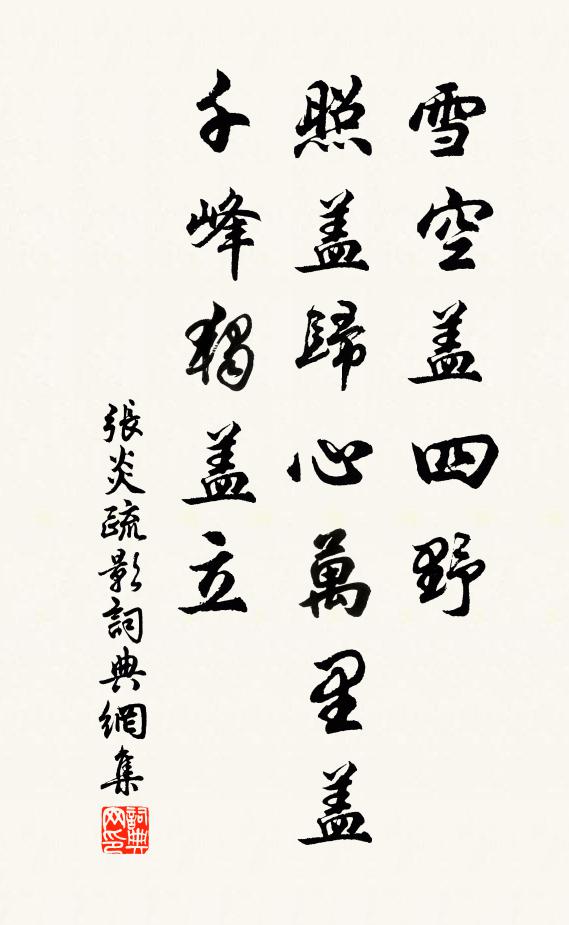 雪空盖四野
照盖歸心萬里盖
千峰獨盖立
張炎疏影詞典網集
詞典網印